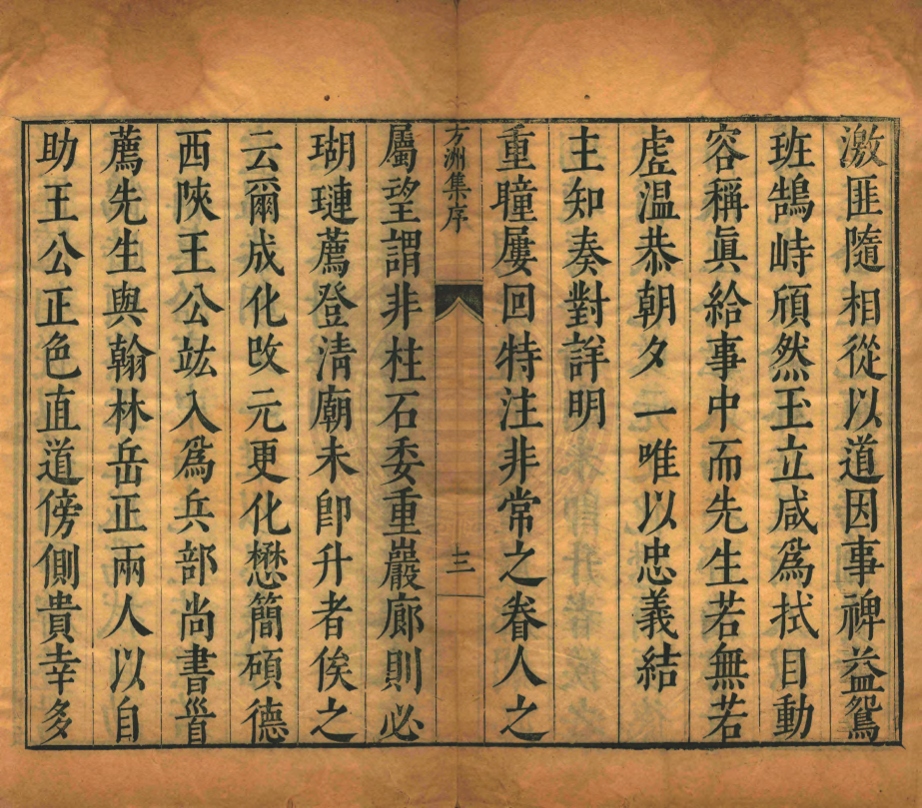 激匪隨相從以道因事裨益鴛
班鵠峙頎然玉立咸爲拭目動
容稱眞給事中而先生若無若
虛温恭朝夕一唯以忠義結
主知奏對詳明
重瞳屢回特注非常之眷人之
方洲集序
三
屬望謂非柱石委重巖廊則必
瑚璉薦登清廟未卽升者俟之
云爾成化改元更化懋簡碩德
西陜王公竑入爲兵部尚書首
薦先生與翰林岳正兩人以自
助王公正色直道傍側貴幸多